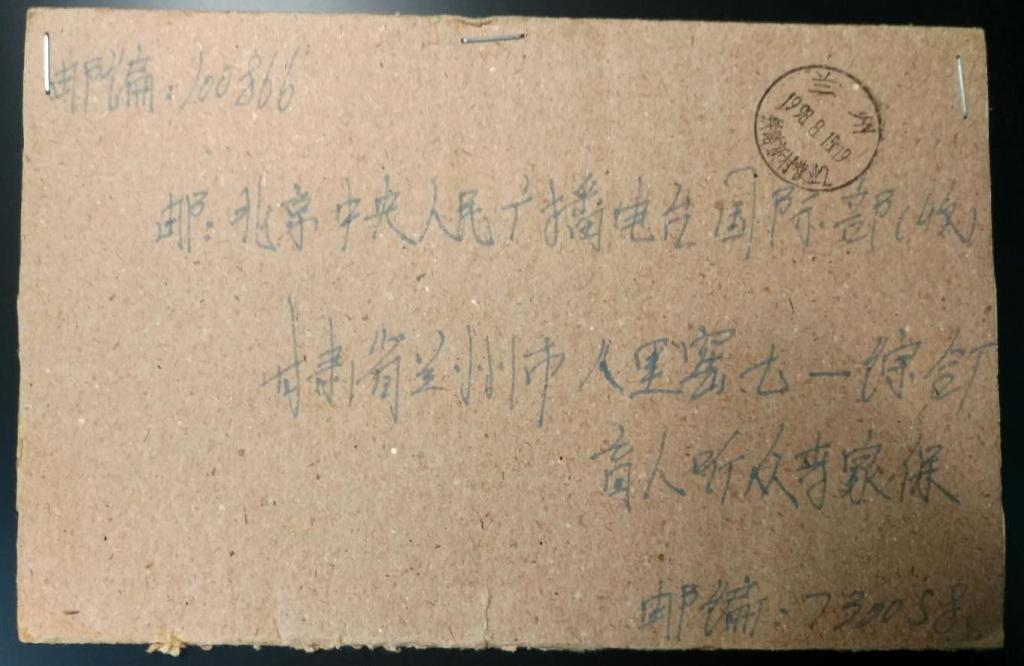 邮编:100866
兰州
1998.8.18.19
邮:北京中央人民广播电台国际部(收)
甘肃省兰州市八里窑七一综合厂
盲人听众李家保
邮编:730058